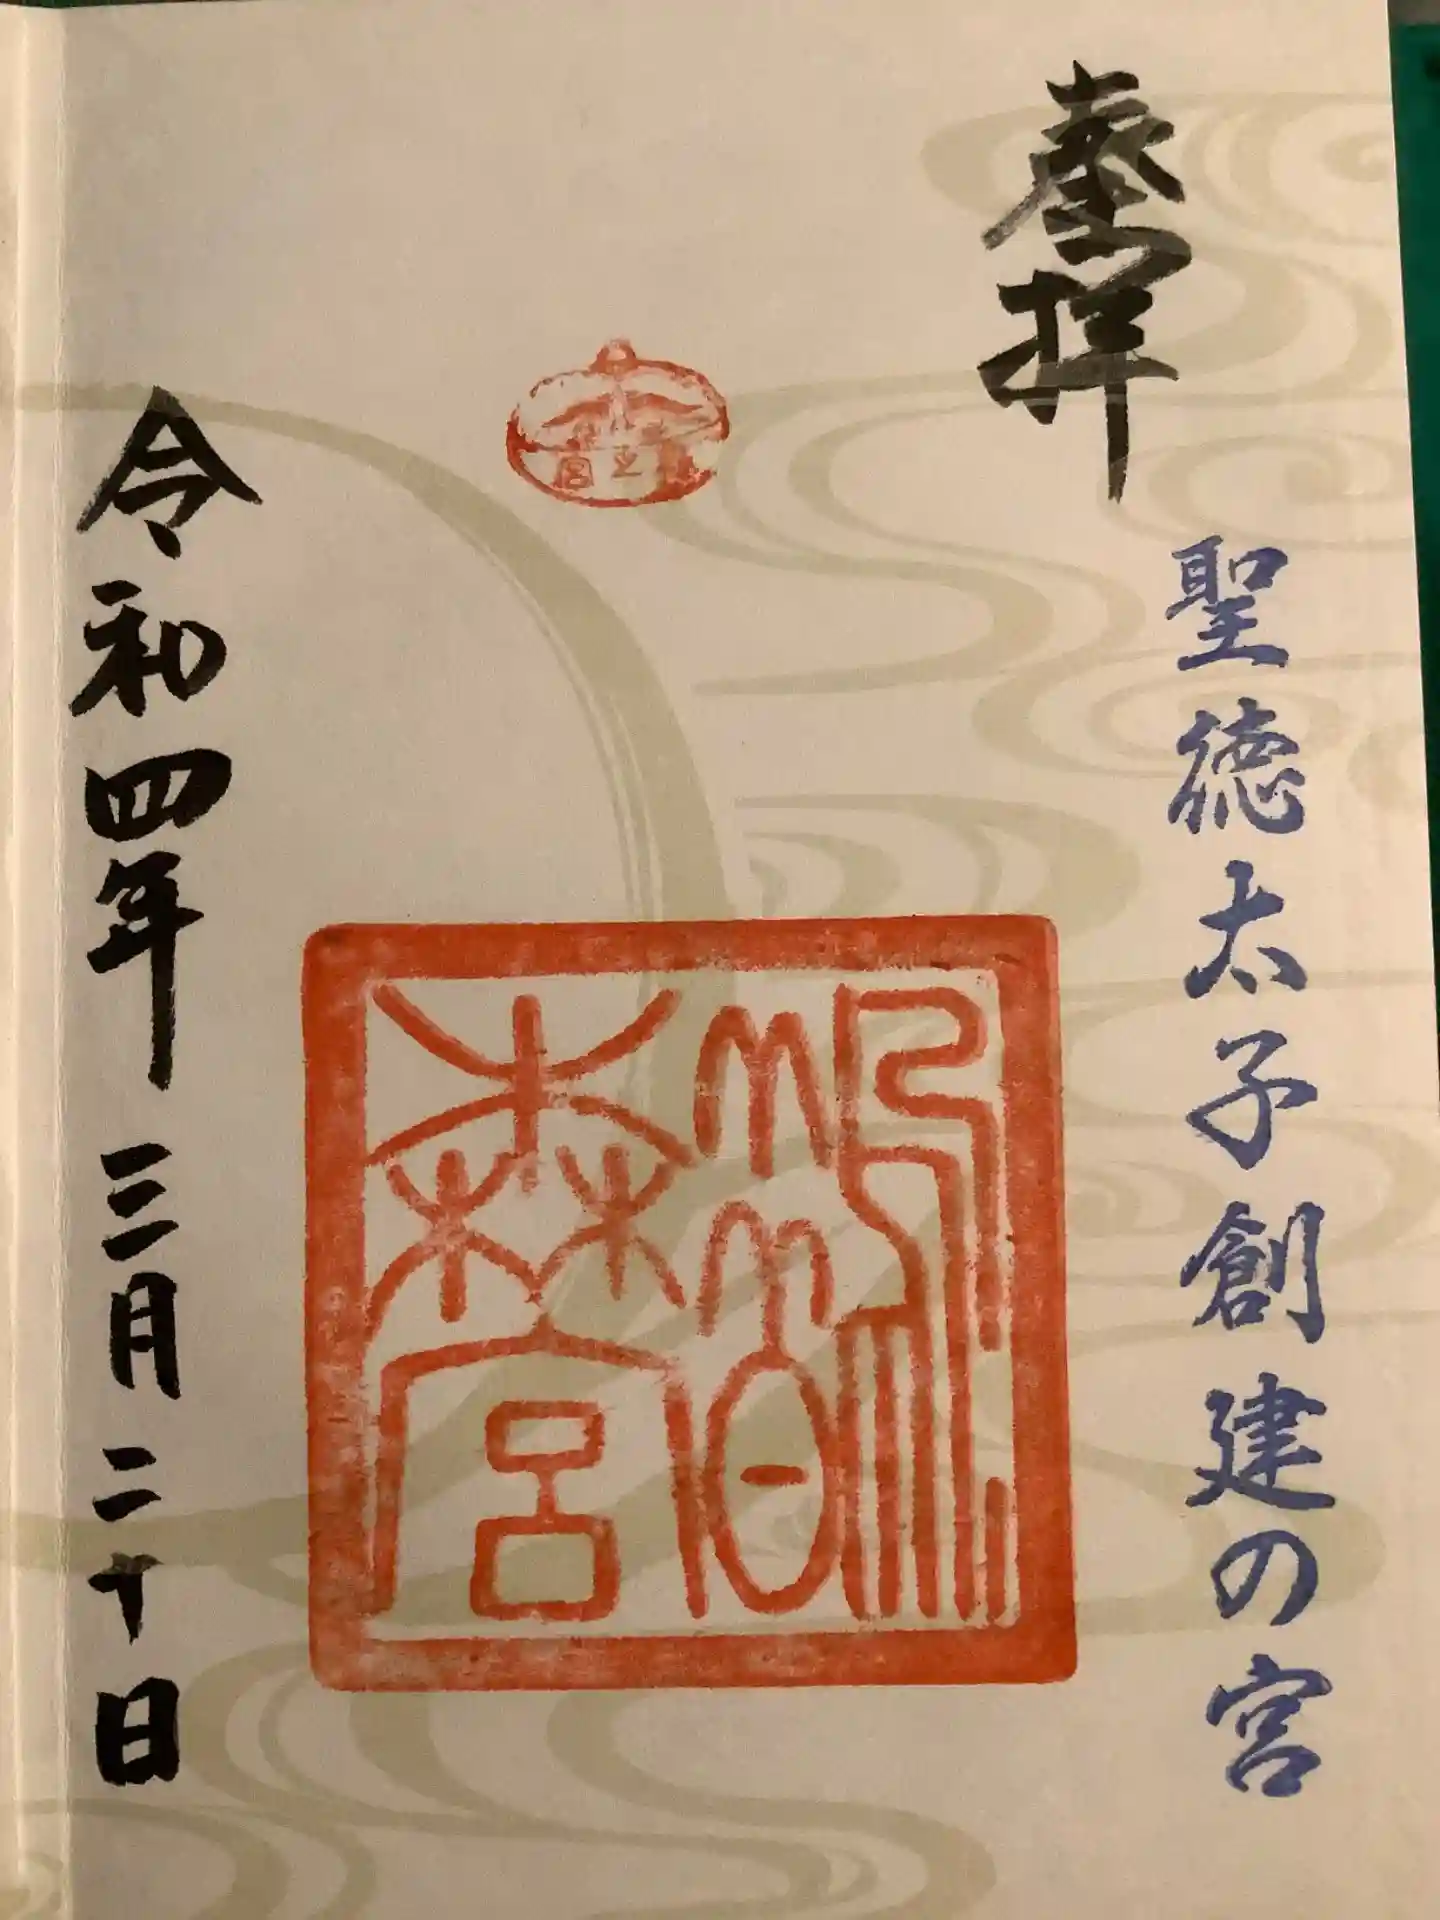 奉拝
聖徳太子創建の宮
鵲森宮
森之宮
令和四年 三月二十日